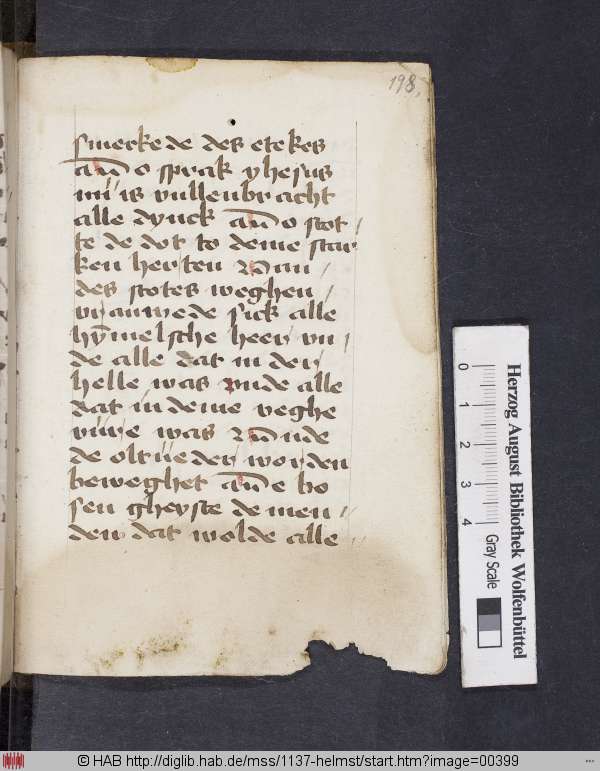 198,
smeckede des etekes
alzo sprak yhesus
nu is vullenbracht
alle dynck also stot
te de dot to deme star
ken herten van
des stotes weghen
vrauwede sick alle
hymelsche heer vn
de alle dat in der
helle was vnde alle
dat in deme veghe
vure was
de olt ueder worden
beweghet bo
sen gheyste de men
den dat wolde alle
Herzog August Bibliothek Wolfenbüttel
0 1 2 3 4
Gray Scale
© HAB http://diglib.hab.de/mss/1137-helmst/start.htm?image=00399